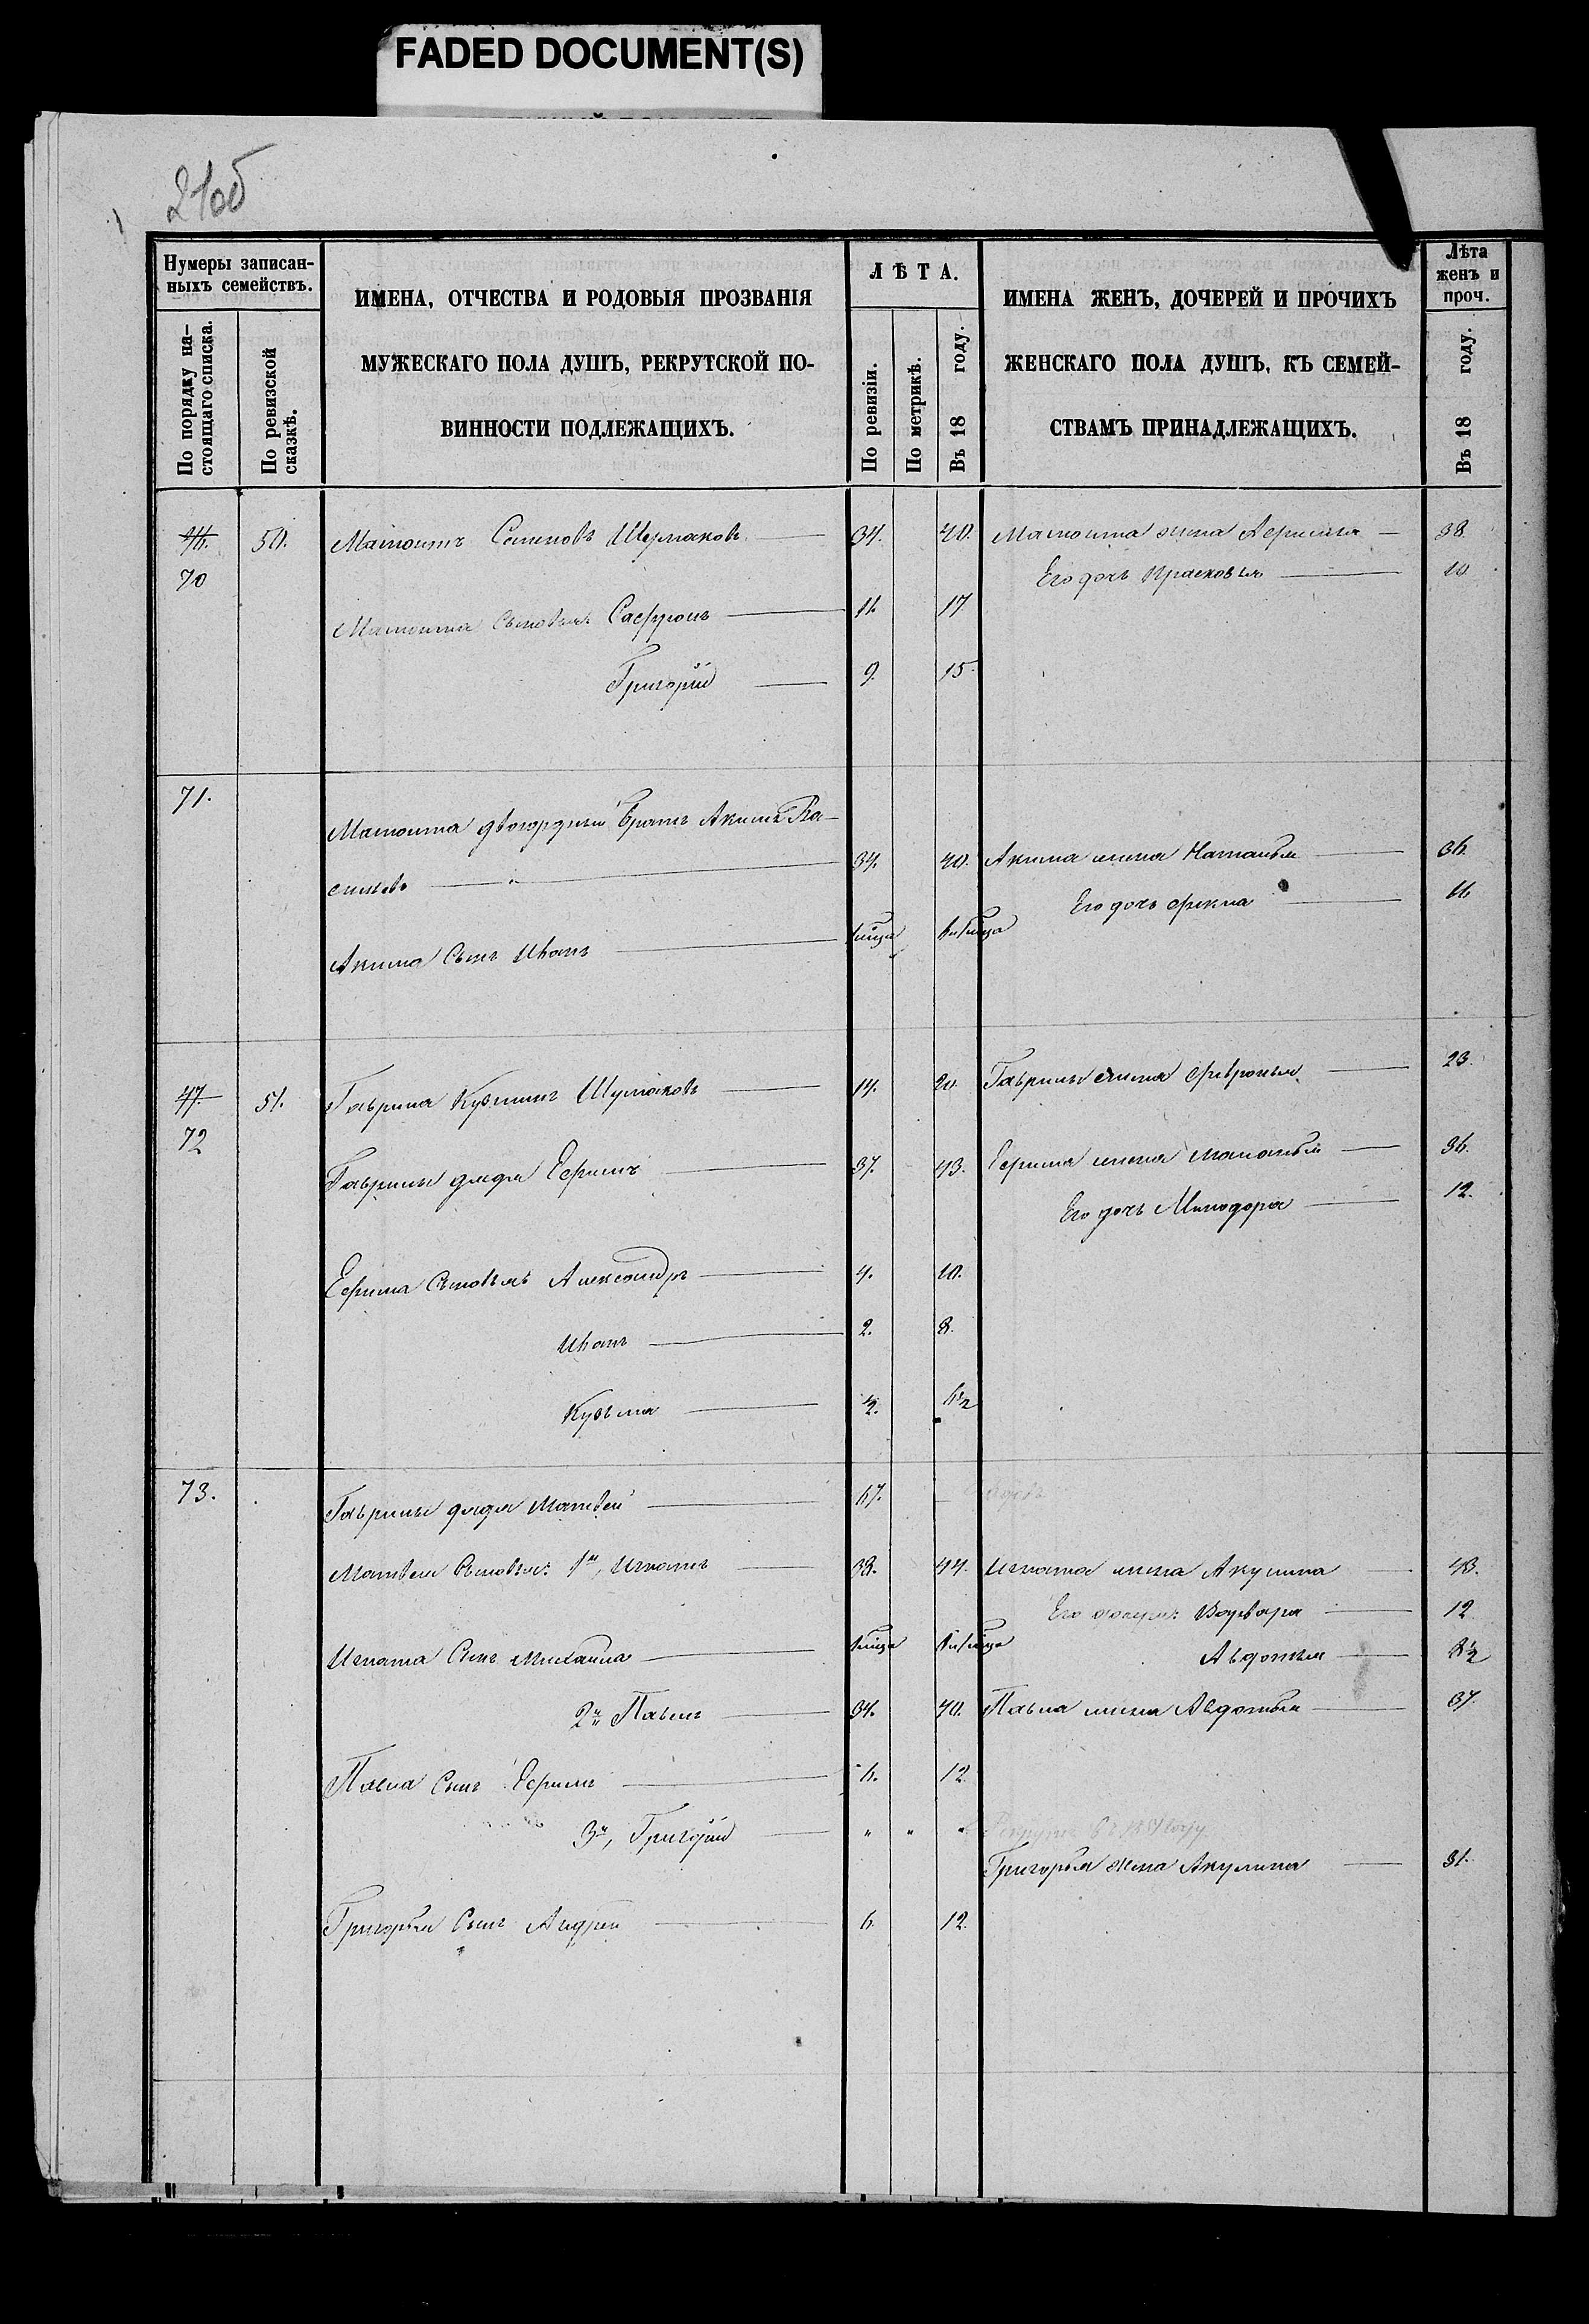 FADED DOCUMENT(S)
21об
Нумеры записан-
ныхъ семействъ.
По порядку на-
стоящаго списка.
По ревизской
сказкѣ.
ИМЕНА, ОТЧЕСТВА И РОДОВЫЯ ПРОЗВАНІЯ
МУЖЕСКАГО ПОЛА ДУШЪ, РЕКРУТСКОЙ ПО-
ВИННОСТИ ПОДЛЕЖАЩИХЪ.
ЛѢТА.
По ревизіи.
По метрикѣ.
Въ 18 году.
ИМЕНА ЖЕНЪ, ДОЧЕРЕЙ И ПРОЧИХЪ
ЖЕНСКАГО ПОЛА ДУШЪ, КЪ СЕМЕЙ-
СТВАМЪ ПРИНАДЛЕЖАЩИХЪ.
Лѣта
женъ и
проч.
Въ 18 году.
46. 50. Мамонтъ Семеновъ 34. 40. Мамонта жена 38.
70 Его дочь Прасковья 10.
Мамонта Сыновья: Сафронъ 11. 17.
Григорій 9. 15.
71.
Мамонта двоюрдный братъ Акимъ Ва-
сильевъ 34. 40. Акима жена Наталья 36.
Его дочь Фекла 11.
Акима Сынъ Иванъ
47. 51. Гаврила Кузминъ Шумаковъ 14. 20. Гаврилы жена Февронья 23.
72
Гаврилы дядя Ефимъ 37. 43. Ефима жена Маланья 36.
Его дочь Минодора 12.
Ефима Сыновья Александръ 4. 10.
Иванъ 2. 8.
Кузьма ½. 6½
73. Гаврилы дядя Матвей 67.
Матвея Сыновья: 1й, Игнатъ 38. 44. Игната жена Акулина 43.
Его дочери: Варвара 12
Игната Сынъ Михайла Авдотья
2й Павелъ 34. 40. Павла жена Авдотья 37.
Павла Сынъ Ефимъ 6. 12.
3й, Григорій " " "
Григорья жена Акулина 31.
Григорья Сынъ Андрей 6. 12.